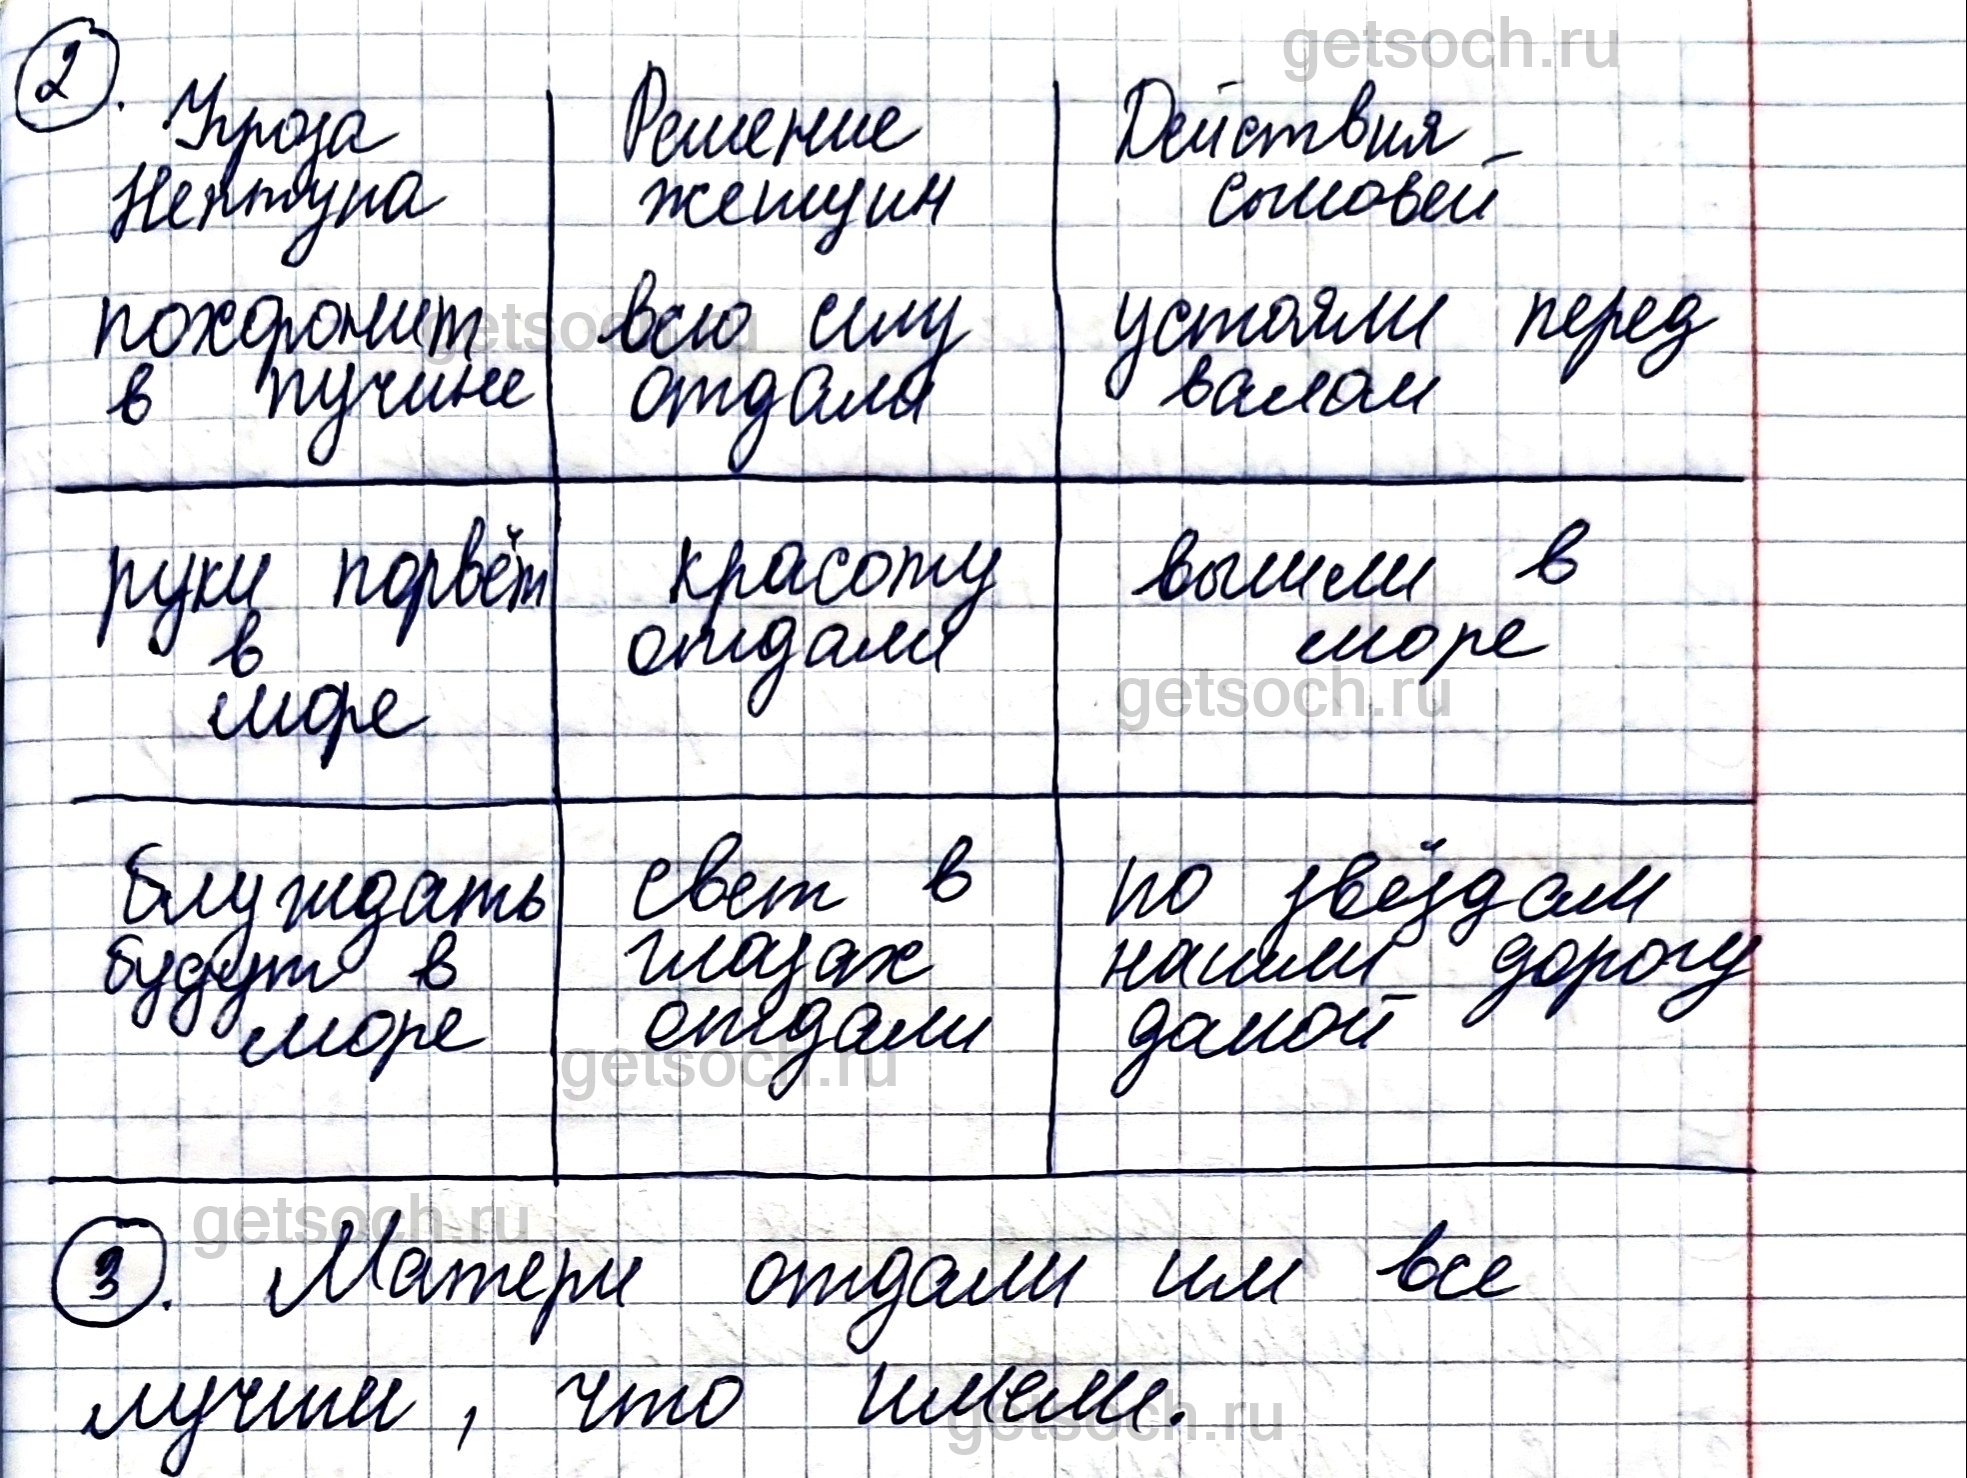 getsoch.ru
2.
Угроза Нептуна
Решение женщин
Действия сыновей
похоронит в пучине
getsoch.ru
всю силу отдали
устояли перед валом
руки порвёт в море
красоту отдали
вышли в море
getsoch.ru
блуждать будут в море
свет в глазах отдали
getsoch.ru
по звёздам нашли дорогу домой
getsoch.ru
3. Матери отдали им все
лучши, что имели.
getsoch.ru